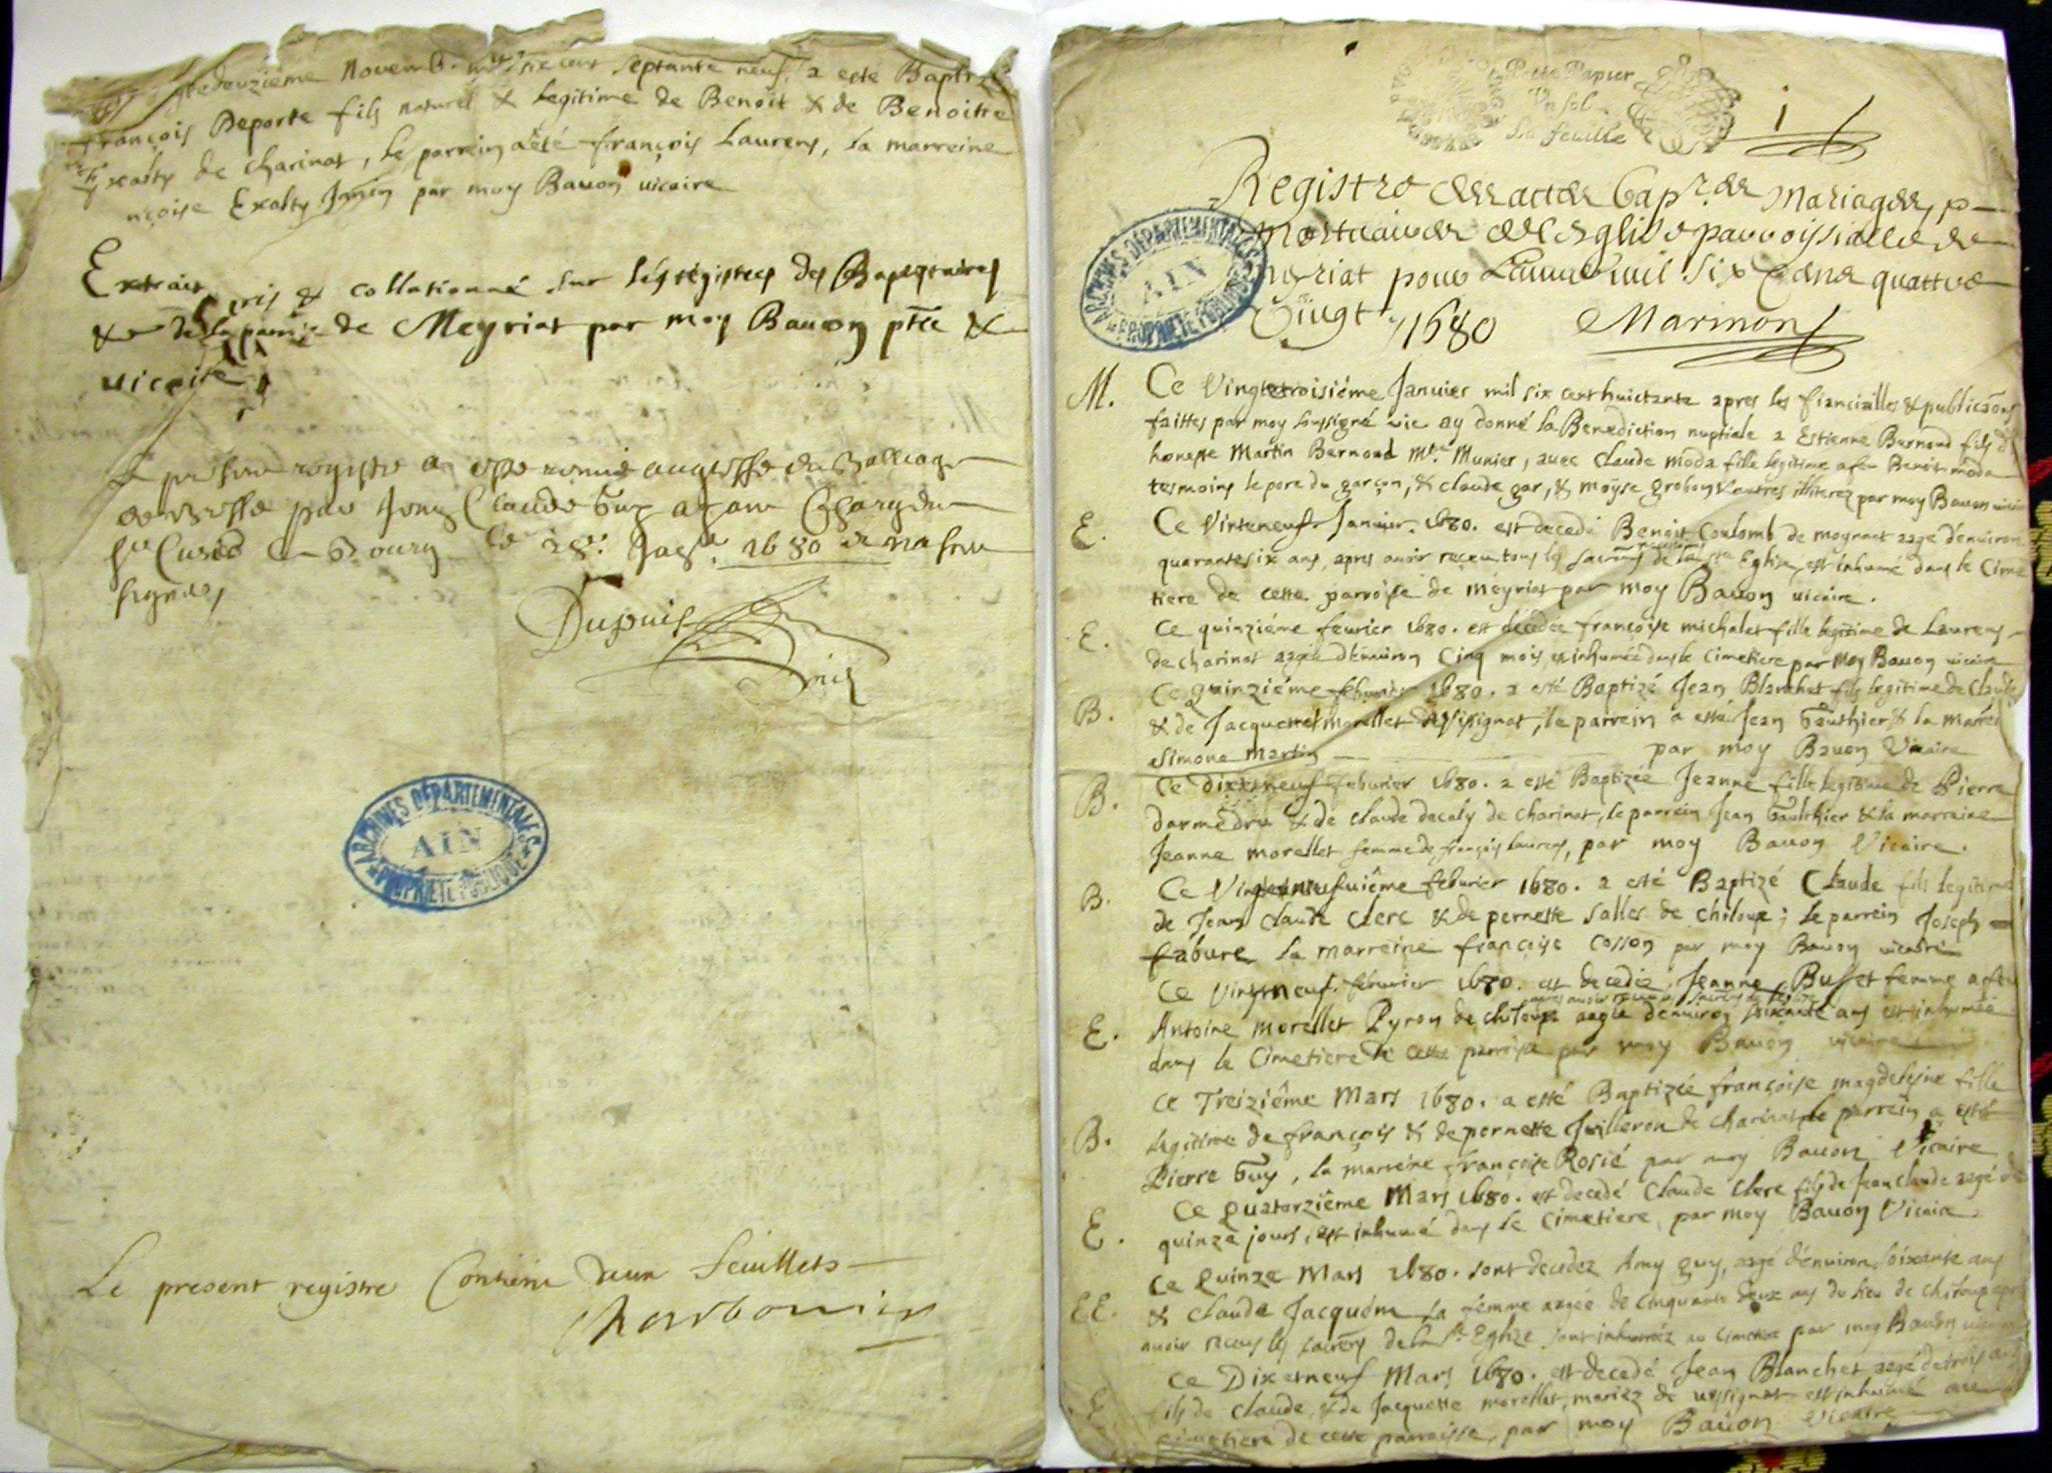 deuzième Novemb. mil six cent septante neuf, a esté Baptizé
françois Deporte fils naturel & legitime de Benoit & de Benoitte
Exalty de charinat, le parrein a été françois Laurens, la marreine
nçoise Exalty Janin par moy Bauon uicaire
Extrait pris & collationné sur les registres des Baptistaires
& de la parroi de Meyriat par moy Bauon ptre &
uicaire
Le present registre a esté remis au greffe du Balliage
de Bresse par Jean Claude Guy ayant charge du
Sr Curé a Bourg le 28e 1680 & na sceu
signer
Dupuis
Le present registre Contient deux feuillets
Charbonnier
Petit Papier
Vn sol
La feuille
i
Registre des actes bapt. de Mariages,
Mortuaires de l'Eglise parroissialle de
Meyriat pour Lannee mil six Cent quattre
Vingt 1680 Marmont
M. Ce Vingtetroisiéme Januier mil six cent huictante apres les fiancialles & publicaons
faittes par moy soussigné vic ay donné la Benediction nuptiale a Estienne Bernoud fils d'
honeste Martin Bernoud Mtre Munier, auec Claude moda fille legitime a feu Benoit moda
tesmoins le pere du garçon, & claude gar, & moyse grobon & autres illiterez par moy Bauon uicaire
E. Ce Vinteneuf Januier 1680. est decedé Benoit Coulomb de moynant aagé d'enuiron
quarantesix ans, apres auoir receu tous les sacrems de la ste Eglise, est inhumé dans le Cime
tiere de cette parroisse de meyriat par moy Bauon uicaire.
E. Ce quinziéme feurier 1680. est décedée françoise michalet fille legitime de Laurens
de charinat aagée d'enuiron Cinq mois est inhumée dans le Cimetiere par moy Bauon uicaire
B. Ce quinziéme feburier 1680. a esté Baptizé Jean Blanchet fils legitime de Claude
& de Jacquette morellet d'Vssignat, le parrein a esté Jean Gauthier & la marrei
Simone Martin par moy Bauon Vicaire
B. Ce dixetneuf feburier 1680. a esté Baptizée Jeanne fille legitime de Pierre
darmedru & de claude decoly de charinat, le parrein Jean Gaulthier & la marraine
Jeanne morellet femme de françois laurens, par moy Bauon Vicaire.
B. Ce Vingteneufuiême feburier 1680. a esté Baptizé Claude fils legitime
de Jean Claude Clerc & de pernette Salles de chiloup; le parrein Joseph
fabure la marreine françoise Cosson par moy Bauon uicaire
E. Ce Vinteneuf feburier 1680. est decedée Jeanne Buffet femme a feu
apres auoir receu les sacrems de l'eglise
Antoine Morellet Pyron de chiloup aagée d'enuiron soixante ans est inhumée
dans le Cimetiere de cette parroisse par moy Bauon uicaire
B. Ce Treiziême Mars 1680. a esté Baptizée françoise magdeleine fille
legitime de françois & de pernette Juilleron de charinat le parrein a esté
Pierre Guy, la marreine françoise Rosié par moy Bauon Vicaire
E. Ce Quatorziême Mars 1680. est decedé Claude Clerc fils de Jean Claude aagé de
quinze jours, est inhumé dans le Cimetiere, par moy Bauon Vicaire.
EE. Ce Quinze Mars 1680. sont decedez Amy guy, aagé d'enuiron soixante ans
& claude Jacquém sa femme aagée de Cinquante deux ans du lieu de chiloup apres
auoir receus les sacrems de la Ste Eglize sont inhumez au cimetiere par moy Bauon uicaire
E. Ce Dixetneuf Mars 1680. est decedé Jean Blanchet aagé de trois ans
fils de claude, & de Jacquette morellet, mariez de ussignat est inhumé au
cimetiere de cette parroisse, par moy Bauon Vicaire
ARCHIVES DÉPARTEMENTALES
AIN
PROPRIÉTÉ PUBLIQUE
ARCHIVES DÉPARTEMENTALES
AIN
PROPRIÉTÉ PUBLIQUE